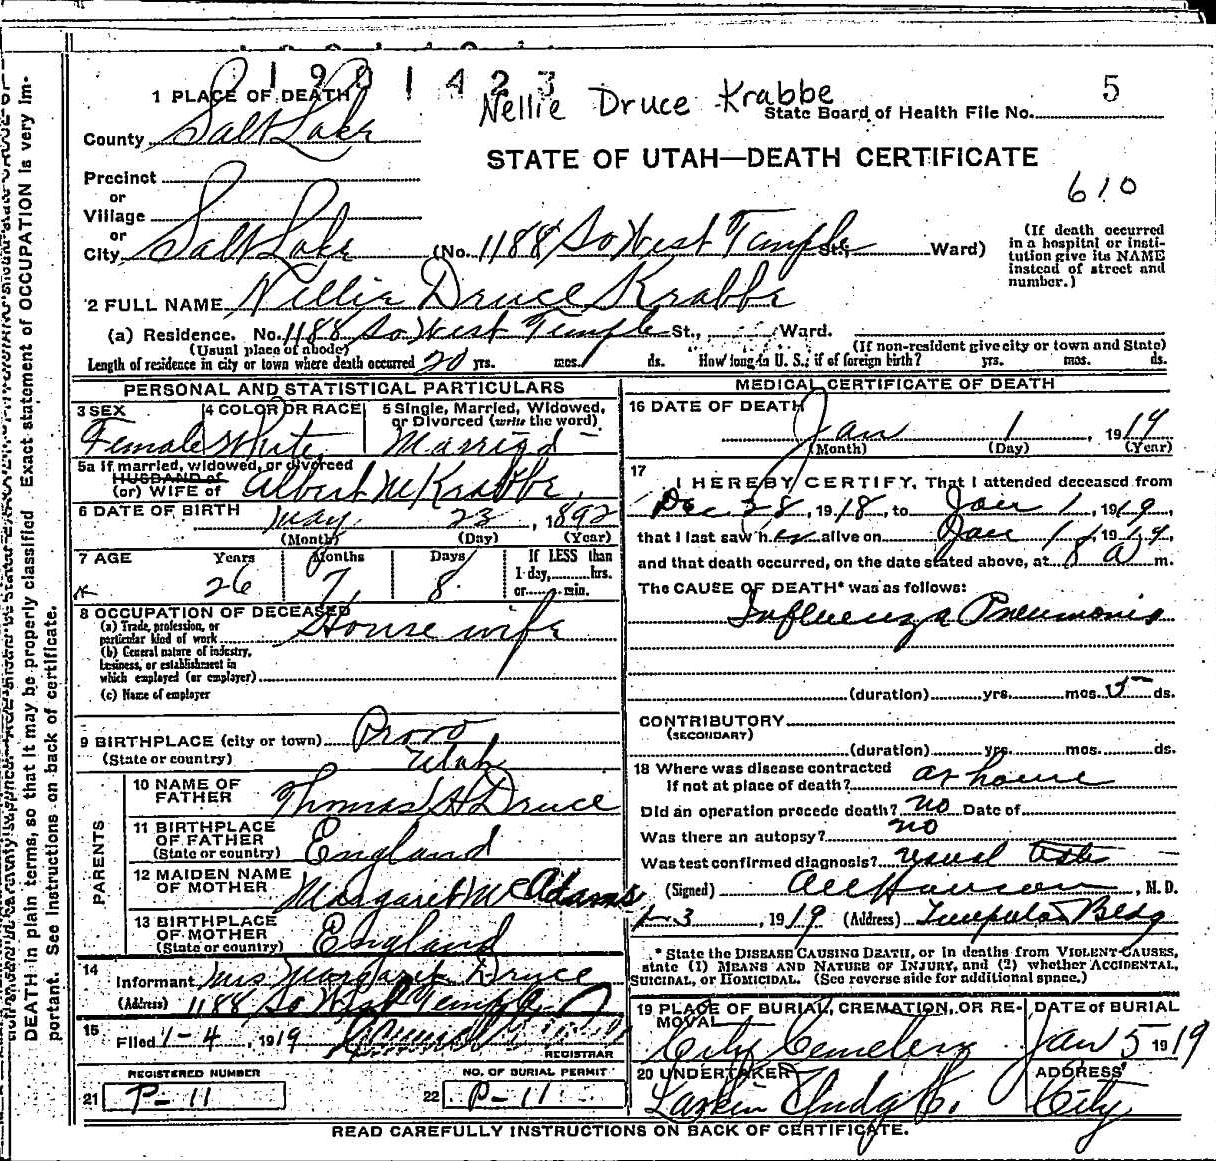 1901423
Nellie Druce Krabbe
5
1 PLACE OF DEATH
State Board of Health File No.
County Salt Lake
STATE OF UTAH—DEATH CERTIFICATE
610
Precinct
or
Village
or
City Salt Lake (No. 1188 So West Temple St., Ward)
(If death occurred in a hospital or insti-
tution give its NAME
instead of street and
number.)
2 FULL NAME Nellie Druce Krabbe
(a) Residence. No. 1188 So West Temple St., Ward.
(Usual place of abode) (If non-resident give city or town and State)
Length of residence in city or town where death occurred 20 yrs. mos. ds. How long in U. S., if of foreign birth? yrs. mos. ds.
PERSONAL AND STATISTICAL PARTICULARS
3 SEX Female
4 COLOR OR RACE White
5 Single, Married, Widowed,
or Divorced (write the word)
Married
5a If married, widowed, or divorced
HUSBAND of
(or) WIFE of Albert M Krabbe
6 DATE OF BIRTH May 23, 1892
(Month) (Day) (Year)
7 AGE Years Months Days If LESS than
1 day, hrs.
or min.
26 7 8
8 OCCUPATION OF DECEASED
(a) Trade, profession, or
particular kind of work Housewife
(b) General nature of industry,
business, or establishment in
which employed (or employer)
(c) Name of employer
9 BIRTHPLACE (city or town) Provo
(State or country) Utah
PARENTS
10 NAME OF
FATHER Thomas A Druce
11 BIRTHPLACE
OF FATHER
(State or country) England
12 MAIDEN NAME
OF MOTHER Margaret McAdams
13 BIRTHPLACE
OF MOTHER
(State or country) England
14
Informant Mrs Margaret Druce
(Address) 1188 So West Temple
15
Filed 1-4, 1919
REGISTRAR
REGISTERED NUMBER
21 P-11
NO. OF BURIAL PERMIT
22 P-11
MEDICAL CERTIFICATE OF DEATH
16 DATE OF DEATH
Jan 1, 1919
(Month) (Day) (Year)
17
I HEREBY CERTIFY, That I attended deceased from
Dec 28, 1918, to Jan 1, 1919,
that I last saw her alive on Jan 1, 1919,
and that death occurred, on the date stated above, at 8 a m.
The CAUSE OF DEATH* was as follows:
Influenza Pneumonia
(duration) yrs. mos. 5 ds.
CONTRIBUTORY
(SECONDARY)
(duration) yrs. mos. ds.
18 Where was disease contracted
if not at place of death? at home
Did an operation precede death? no Date of
Was there an autopsy? no
Was test confirmed diagnosis? usual tests
(Signed) , M. D.
1-3, 1919 (Address) Templeton Bldg
* State the DISEASE CAUSING DEATH, or in deaths from VIOLENT CAUSES,
state (1) MEANS AND NATURE OF INJURY, and (2) whether ACCIDENTAL,
SUICIDAL, or HOMICIDAL. (See reverse side for additional space.)
19 PLACE OF BURIAL, CREMATION, OR RE-
MOVAL
City Cemetery
DATE OF BURIAL
Jan 5 1919
20 UNDERTAKER
ADDRESS
City
READ CAREFULLY INSTRUCTIONS ON BACK OF CERTIFICATE.
DEATH in plain terms, so that it may be properly classified. Exact statement of OCCUPATION is very im-
portant. See instructions on back of certificate.